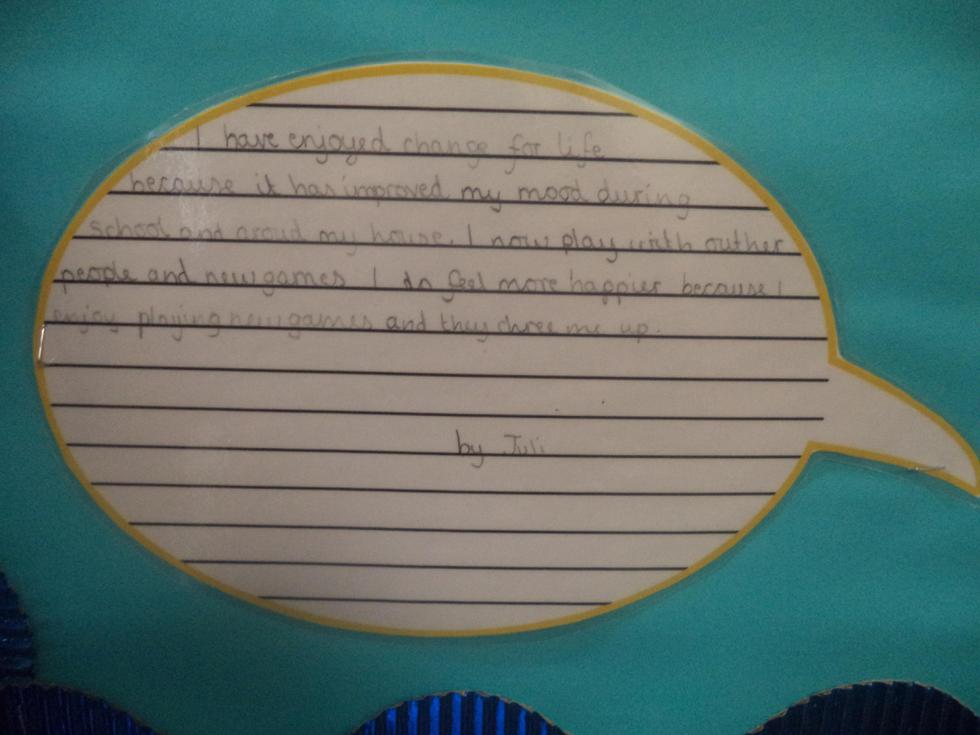 I have enjoyed change for life
because it has improved my mood during
school and aroud my house. I now play with outher
people and new games I do feel more happier because I
enjoy playing new games and they chree me up.
by Juli